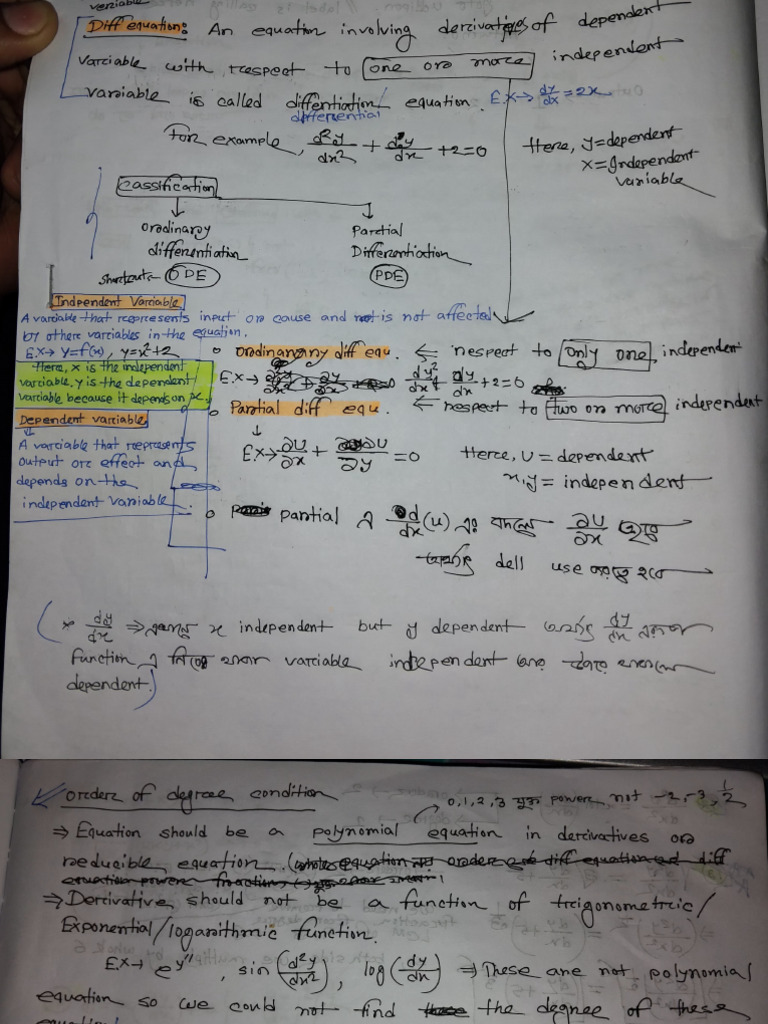 variable
Diff equation: An equation involving derivatives of dependent
variable with respect to one or more independent
variable is called diffentiation equation. E.X→ dy/dx = 2x
differential
For example, d²y/dx² + dy/dx +2=0
Here, y=dependent
x=Independent
variable
Cassification
Ordinary
differentiation
Partial
Differentiation
shortcut→ ODE
PDE
Indpendent Variable
A variable that represents input or cause and is not affected
by other variables in the equation.
E.X→ y=f(x), y=x²+2
Here, x is the independent
variable, y is the dependent
variable because it depends on x.
Dependent variable
A variable that represents
output or effect and
depends on the
independent variable.
o ordinanany diff equ. ← respect to only one independent
E.X→ dy²/dx² + dy/dx +2=0
o Partial diff equ. ← respect to two or more independent
E.X→ ∂U/∂x + ∂U/∂y =0 Here, U = dependent
x,y = independent
o partial এ d/dx (u) এর বদলে ∂U/∂x হবে
অর্থাৎ dell use করতে হবে
* dy/dx ⇒ এখানে x independent but y dependent অর্থাৎ dy/dx এরকম
function এ নিচে থাকা variable independent আর উপরে থাকলে
dependent.
order of degree condition
0,1,2,3 যুক্ত power, not -2,-3, 1/2
⇒ Equation should be a polynomial equation in derivatives or
reducible equation.
⇒ Derivative should not be a function of trigonometric/
Exponential/logarithmic function.
E.X→ e^y'', sin(d²y/dx²), log(dy/dx) ⇒ These are not polynomial
equation so we could not find the degree of these